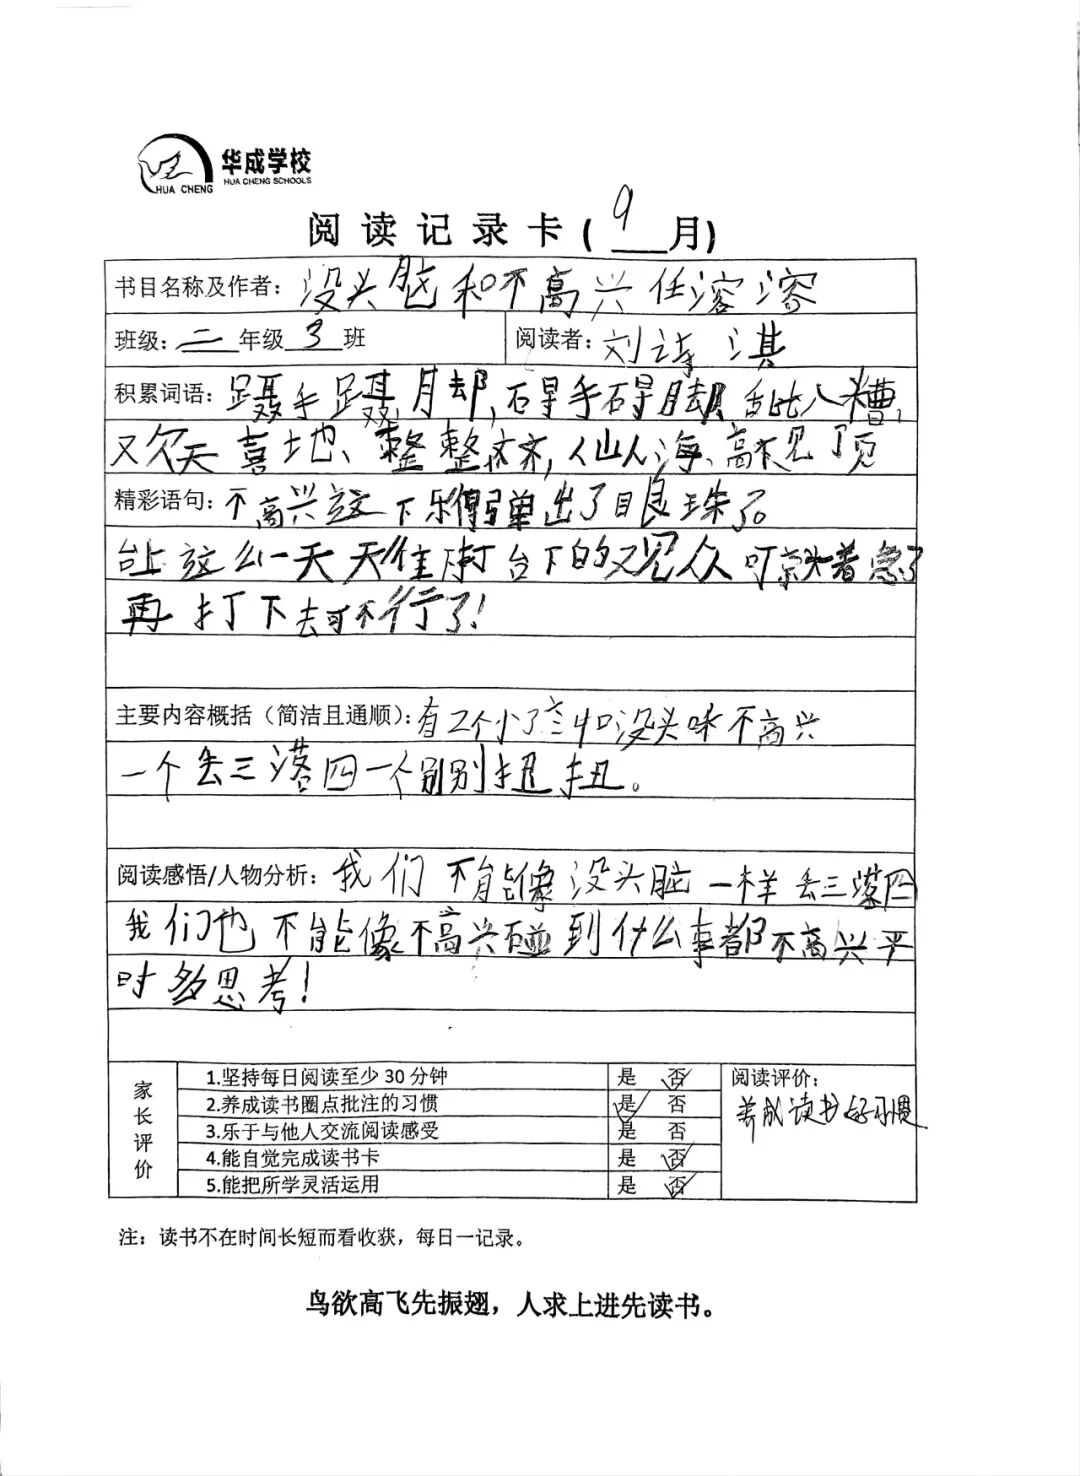 华成学校
HUA CHENG SCHOOLS
HUA CHENG
阅读记录卡(9月)
书目名称及作者：没头脑和不高兴 任溶溶
班级：二年级3班 阅读者：刘诗淇
积累词语：蹑手蹑脚，碍手碍脚、乱七八糟、
欢天喜地、整整齐齐，人山人海、高不见顶
精彩语句：不高兴这下乐得弹出了眼珠了。
台上这么一天天往打台下的观众可就着急了
再打下去可不行了！
主要内容概括（简洁且通顺）：有2个小 叫没头 不高兴
一个丢三落四一个别别扭扭。
阅读感悟/人物分析：我们不能像没头脑一样丢三落四
我们也不能像不高兴碰到什么事都不高兴平
时多思考！
家长评价
1.坚持每日阅读至少30分钟 是 否
2.养成读书圈点批注的习惯 是 否
3.乐于与他人交流阅读感受 是 否
4.能自觉完成读书卡 是 否
5.能把所学灵活运用 是 否
阅读评价：
养成读书好习惯
注：读书不在时间长短而看收获，每日一记录。
鸟欲高飞先振翅，人求上进先读书。